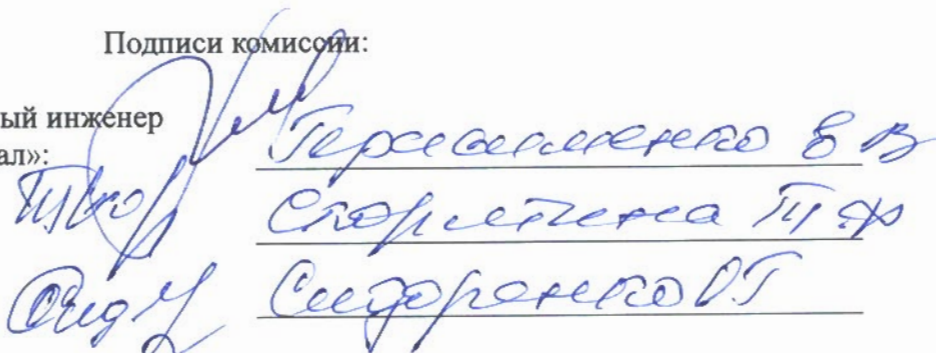 Подписи комиссии:
ый инженер
ал»:
Герасименко Е В
Т Ф
Сидоренко О Г